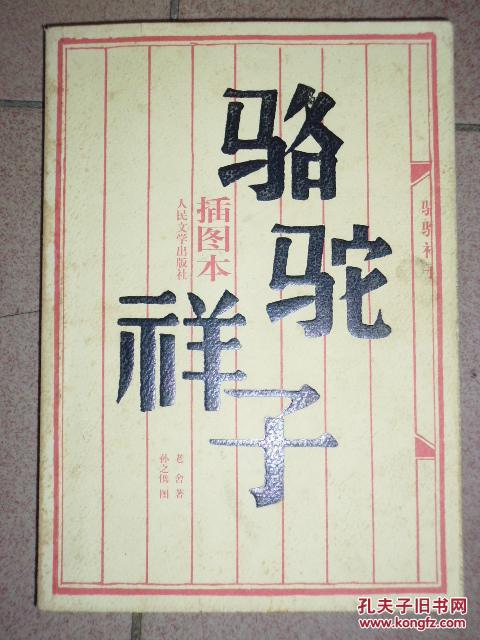 骆驼祥子
插图本
人民文学出版社
骆驼祥子
老舍 著
孙之儁 图
孔夫子旧书网
KONGFZ.COM